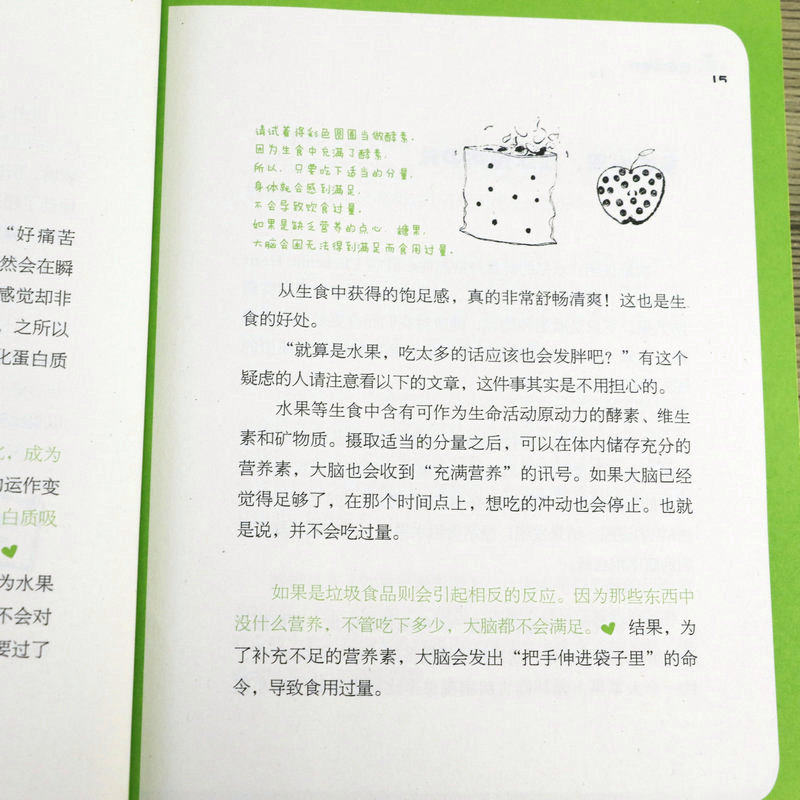 “好痛苦
然会在瞬
感觉却非
，之所以
化蛋白质
，成为
的运作变
白质吸
为水果
不会对
要过了
15
请试着将彩色圆圈当做酵素.
因为生食中充满了酵素.
所以，只要吃下适当的分量.
身体就会感到满足.
不会导致饮食过量.
如果是缺乏营养的点心、糖果.
大脑会因无法得到满足而食用过量.
从生食中获得的饱足感，真的非常舒畅清爽！这也是生
食的好处。
“就算是水果，吃太多的话应该也会发胖吧？”有这个
疑虑的人请注意看以下的文章，这件事其实是不用担心的。
水果等生食中含有可作为生命活动原动力的酵素、维生
素和矿物质。摄取适当的分量之后，可以在体内储存充分的
营养素，大脑也会收到“充满营养”的讯号。如果大脑已经
觉得足够了，在那个时间点上，想吃的冲动也会停止。也就
是说，并不会吃过量。
如果是垃圾食品则会引起相反的反应。因为那些东西中
没什么营养，不管吃下多少，大脑都不会满足。结果，为
了补充不足的营养素，大脑会发出“把手伸进袋子里”的命
令，导致食用过量。